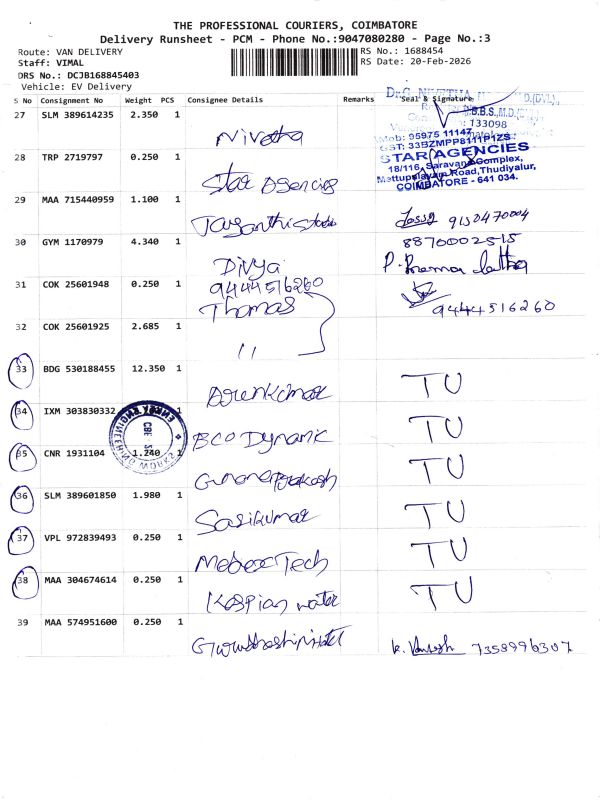 THE PROFESSIONAL COURIERS, COIMBATORE
Delivery Runsheet - PCM - Phone No.:9047080280 - Page No.:3
Route: VAN DELIVERY RS No.: 1688454
Staff: VIMAL RS Date: 20-Feb-2026
DRS No.: DCJB168845403
Vehicle: EV Delivery
S No Consignment No Weight PCS Consignee Details Remarks Seal & Signature
27 SLM 389614235 2.350 1
Nivetha
133098
Mob: 95975 11147
GST: 33BZMPP8111P1ZS
28 TRP 2719797 0.250 1
Star Agencies
STAR AGENCIES
18/116, Saravana Complex,
Mettupalayam Road, Thudiyalur,
COIMBATORE - 641 034.
29 MAA 715440959 1.100 1
9150470004
30 GYM 1170979 4.340 1
Divya
8870002515
P. Prema Latha
31 COK 25601948 0.250 1
9444516260
Thomas
9444516260
32 COK 25601925 2.685 1
11
33 BDG 530188455 12.350 1
Arunkumar TU
34 IXM 303830332 1
BCO Dynamic TU
35 CNR 1931104 1.240 1
Gunaprakash TU
36 SLM 389601850 1.980 1
Sasikumar TU
37 VPL 972839493 0.250 1
Tech TU
38 MAA 304674614 0.250 1
Kaspian water TU
39 MAA 574951600 0.250 1
7358996307